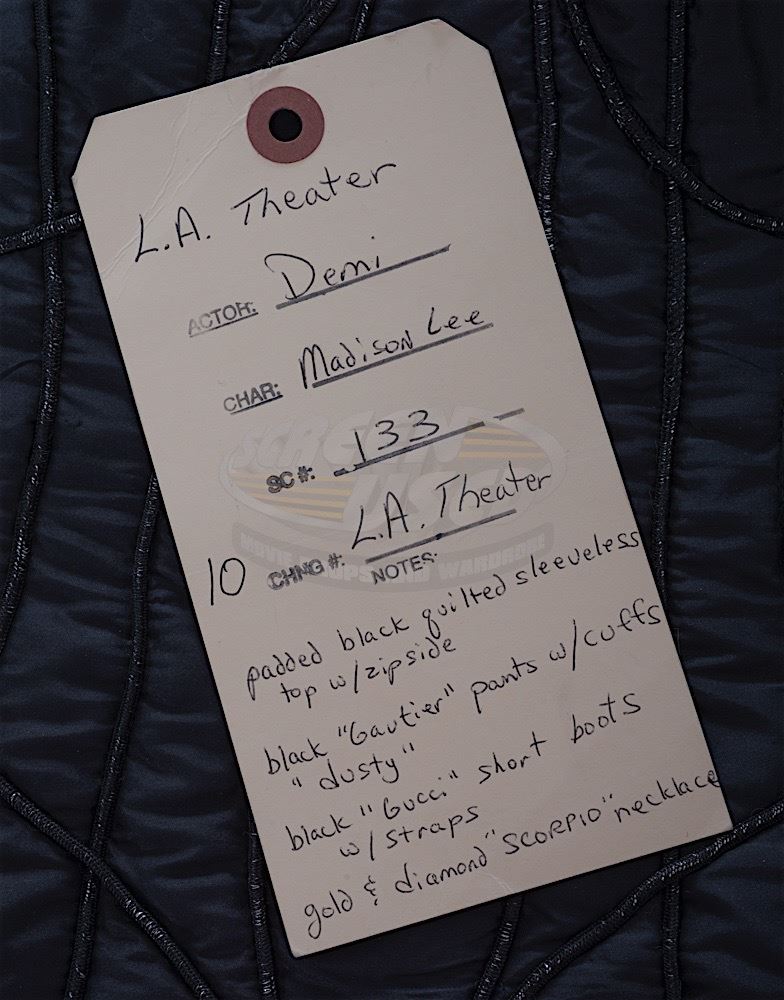 L.A. Theater
ACTOR: Demi
CHAR: Madison Lee
SC #: 133
10 CHNG #: L.A. Theater
NOTES:
padded black quilted sleeveless
top w/zipside
black "Gautier" pants w/cuffs
"dusty"
black "Gucci" short boots
w/straps
gold & diamond "SCORPIO" necklace
SCREEN
USED
MOVIE PROPS AND WARDROBE